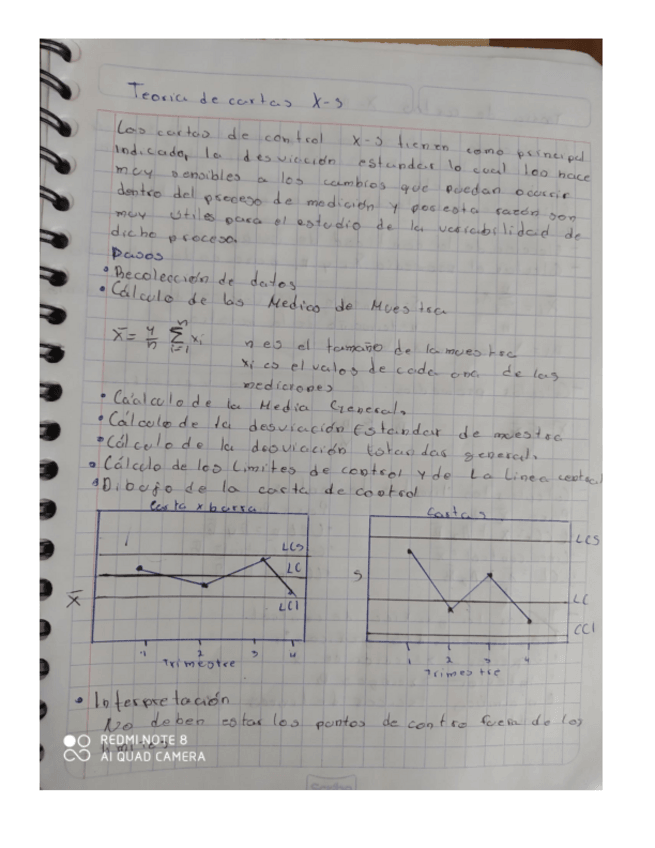 Teoria de cartas X-s
Las cartas de control x-s tienen como principal
indicador la desviación estandar lo cual las hace
muy sensibles a los cambios que puedan ocurrir
dentro del proceso de medición y por esta razón son
muy utiles para el estudio de la variabilidad de
dicho proceso.
Pasos
• Recolección de datos
• Cálculo de las Medica de Muestra
X̄ = 1/n Σ xi n i=1 n es el tamaño de la muestra
xi es el valor de cada una de las
mediciones
• Cáalculo de la Media General.
• Cálculo de la desviación Estandar de muestra
• Cálculo de la desviación Estandar general.
• Cálculo de los Limites de control y de La Linea central
• Dibujo de la carta de control
Carta x barra
Carta s
LCS
LC
LCI
X̄
1 2 3 4
Trimestre
LCS
S
LC
CCI
1 2 3 4
Trimestre
• Interpretación
No deben estar los puntos de contro fuera de los
REDMI NOTE 8
AI QUAD CAMERA